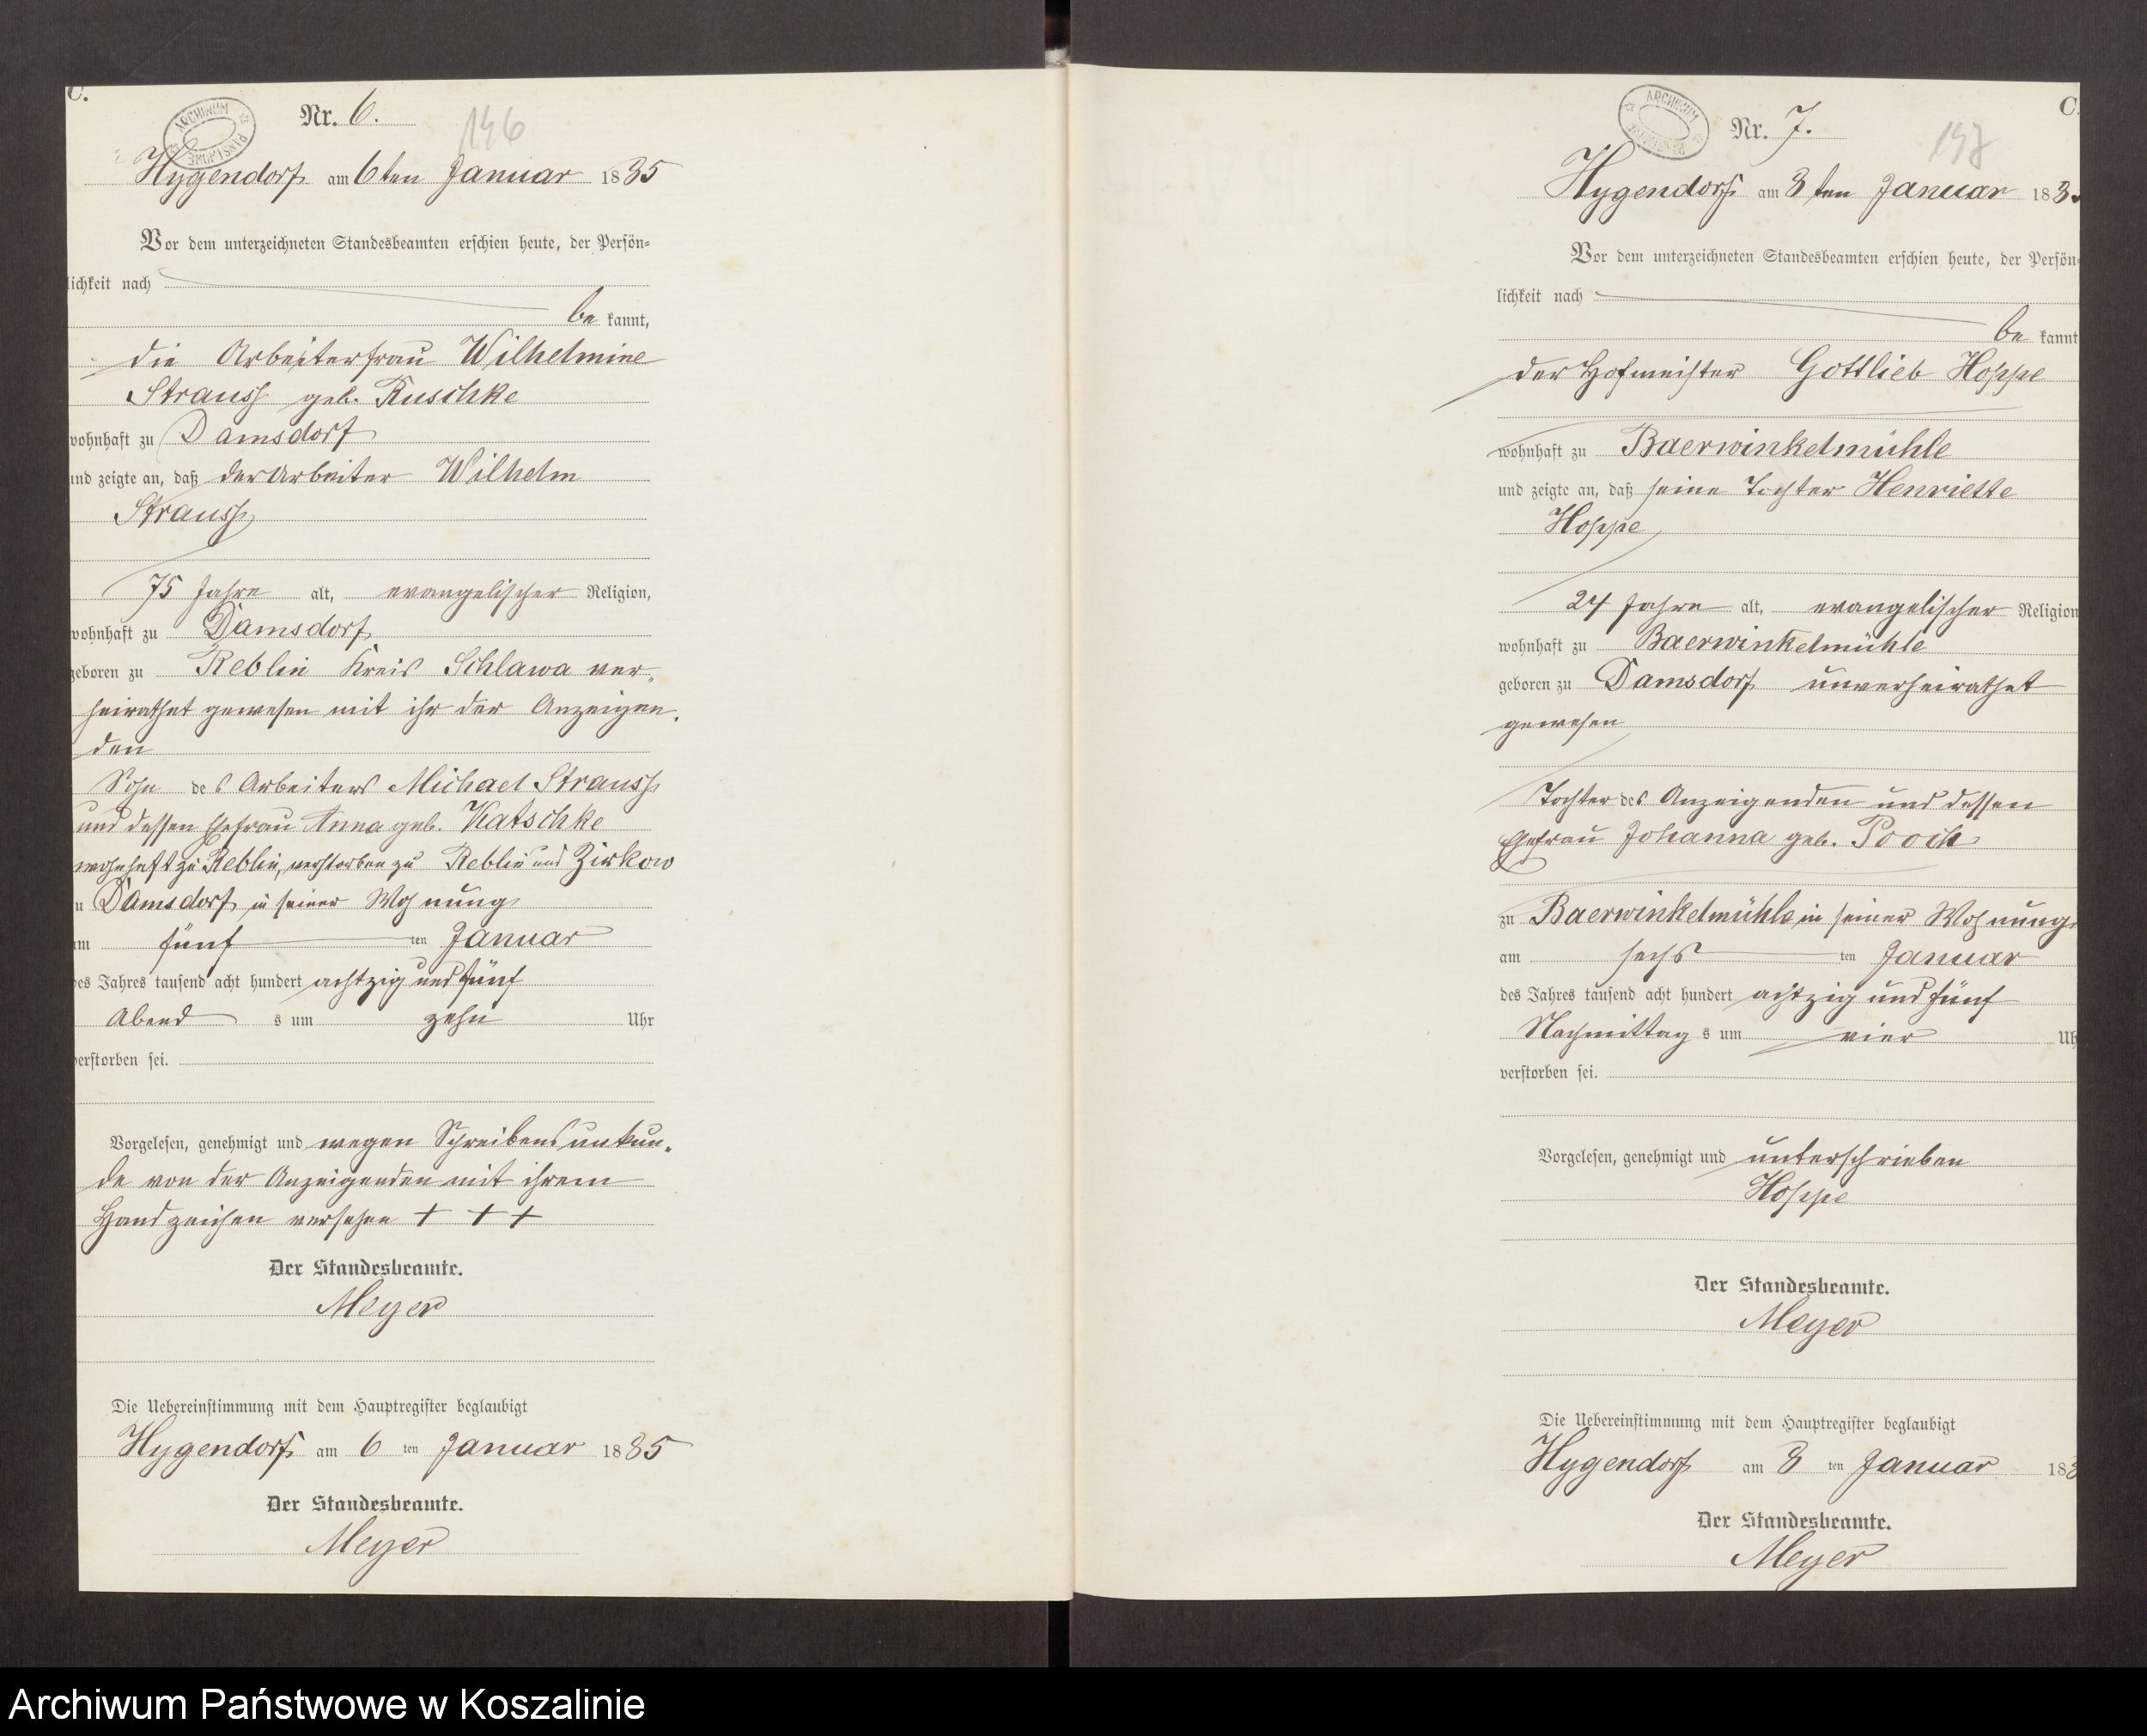 C.
ARCHIWUM PAŃSTWOWE
Nr. 6.
146
Hygendorf am 6ten Januar 1885
Vor dem unterzeichneten Standesbeamten erschien heute, der Persön-
lichkeit nach
be kannt,
die Arbeiterfrau Wilhelmine
Strauss geb. Ruschke
wohnhaft zu Damsdorf
und zeigte an, daß der Arbeiter Wilhelm
Strauss
75 Jahre alt, evangelischer Religion,
wohnhaft zu Damsdorf
geboren zu Reblin Kreis Schlawa ver-
heirathet gewesen mit ihr der Anzeigen-
den
Sohn des Arbeiters Michael Strauss
und dessen Ehefrau Anna geb. Katschke
wohnhaft zu Reblin, verstorben zu Reblin und Zirkow
zu Damsdorf in seiner Wohnung
am fünf ten Januar
des Jahres tausend acht hundert achtzig und fünf
Abend s um zehn Uhr
verstorben sei.
Vorgelesen, genehmigt und wegen Schreibensunkun-
de von der Anzeigenden mit ihrem
Handzeichen versehen + + +
Der Standesbeamte.
Meyer
Die Uebereinstimmung mit dem Hauptregister beglaubigt
Hygendorf am 6 ten Januar 1885
Der Standesbeamte.
Meyer
C.
ARCHIWUM PAŃSTWOWE
Nr. 7.
147
Hygendorf am 8ten Januar 188
Vor dem unterzeichneten Standesbeamten erschien heute, der Persön-
lichkeit nach
be kannt
der Hofmeister Gottlieb Hoppe
wohnhaft zu Baerwinkelmühle
und zeigte an, daß seine Tochter Henriette
Hoppe
24 Jahre alt, evangelischer Religion
wohnhaft zu Baerwinkelmühle
geboren zu Damsdorf unverheirathet
gewesen
Tochter des Anzeigenden und dessen
Ehefrau Johanna geb. Pooch
zu Baerwinkelmühle in seiner Wohnung
am sechs ten Januar
des Jahres tausend acht hundert achtzig und fünf
Nachmittag s um vier Uh
verstorben sei.
Vorgelesen, genehmigt und unterschrieben
Hoppe
Der Standesbeamte.
Meyer
Die Uebereinstimmung mit dem Hauptregister beglaubigt
Hygendorf am 8 ten Januar 188
Der Standesbeamte.
Meyer
Archiwum Państwowe w Koszalinie